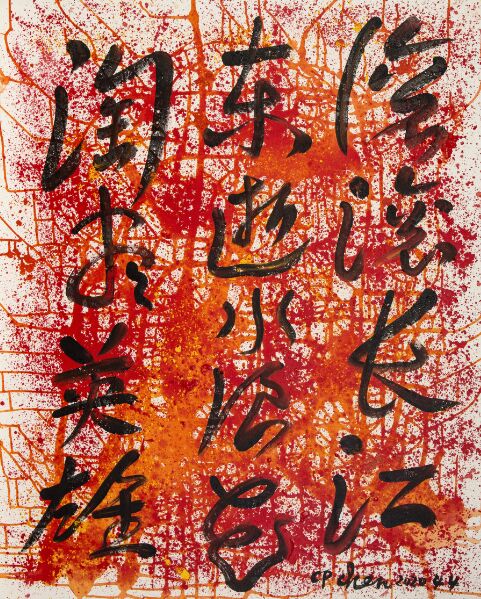 滚滚长江
东逝水浪花
淘尽英雄
CP chen 2020.4.4